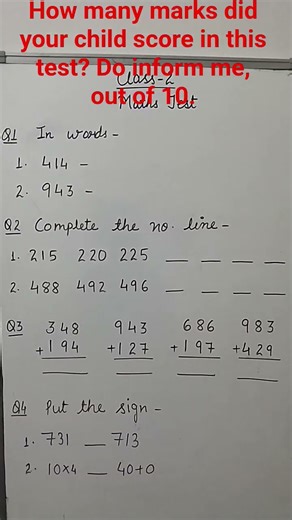 How many marks did
your child score in this
test? Do inform me,
out of 10.
Class-2
Maths Test
Q1 In words -
1. 414 -
2. 943 -
Q2 Complete the no. line -
1. 215 220 225 __ __ __ __
2. 488 492 496 __ __ __ __
Q3 348 943 686 983
+194 +127 +197 +429
Q4 Put the sign -
1. 731 __ 713
2. 10×4 __ 40+0